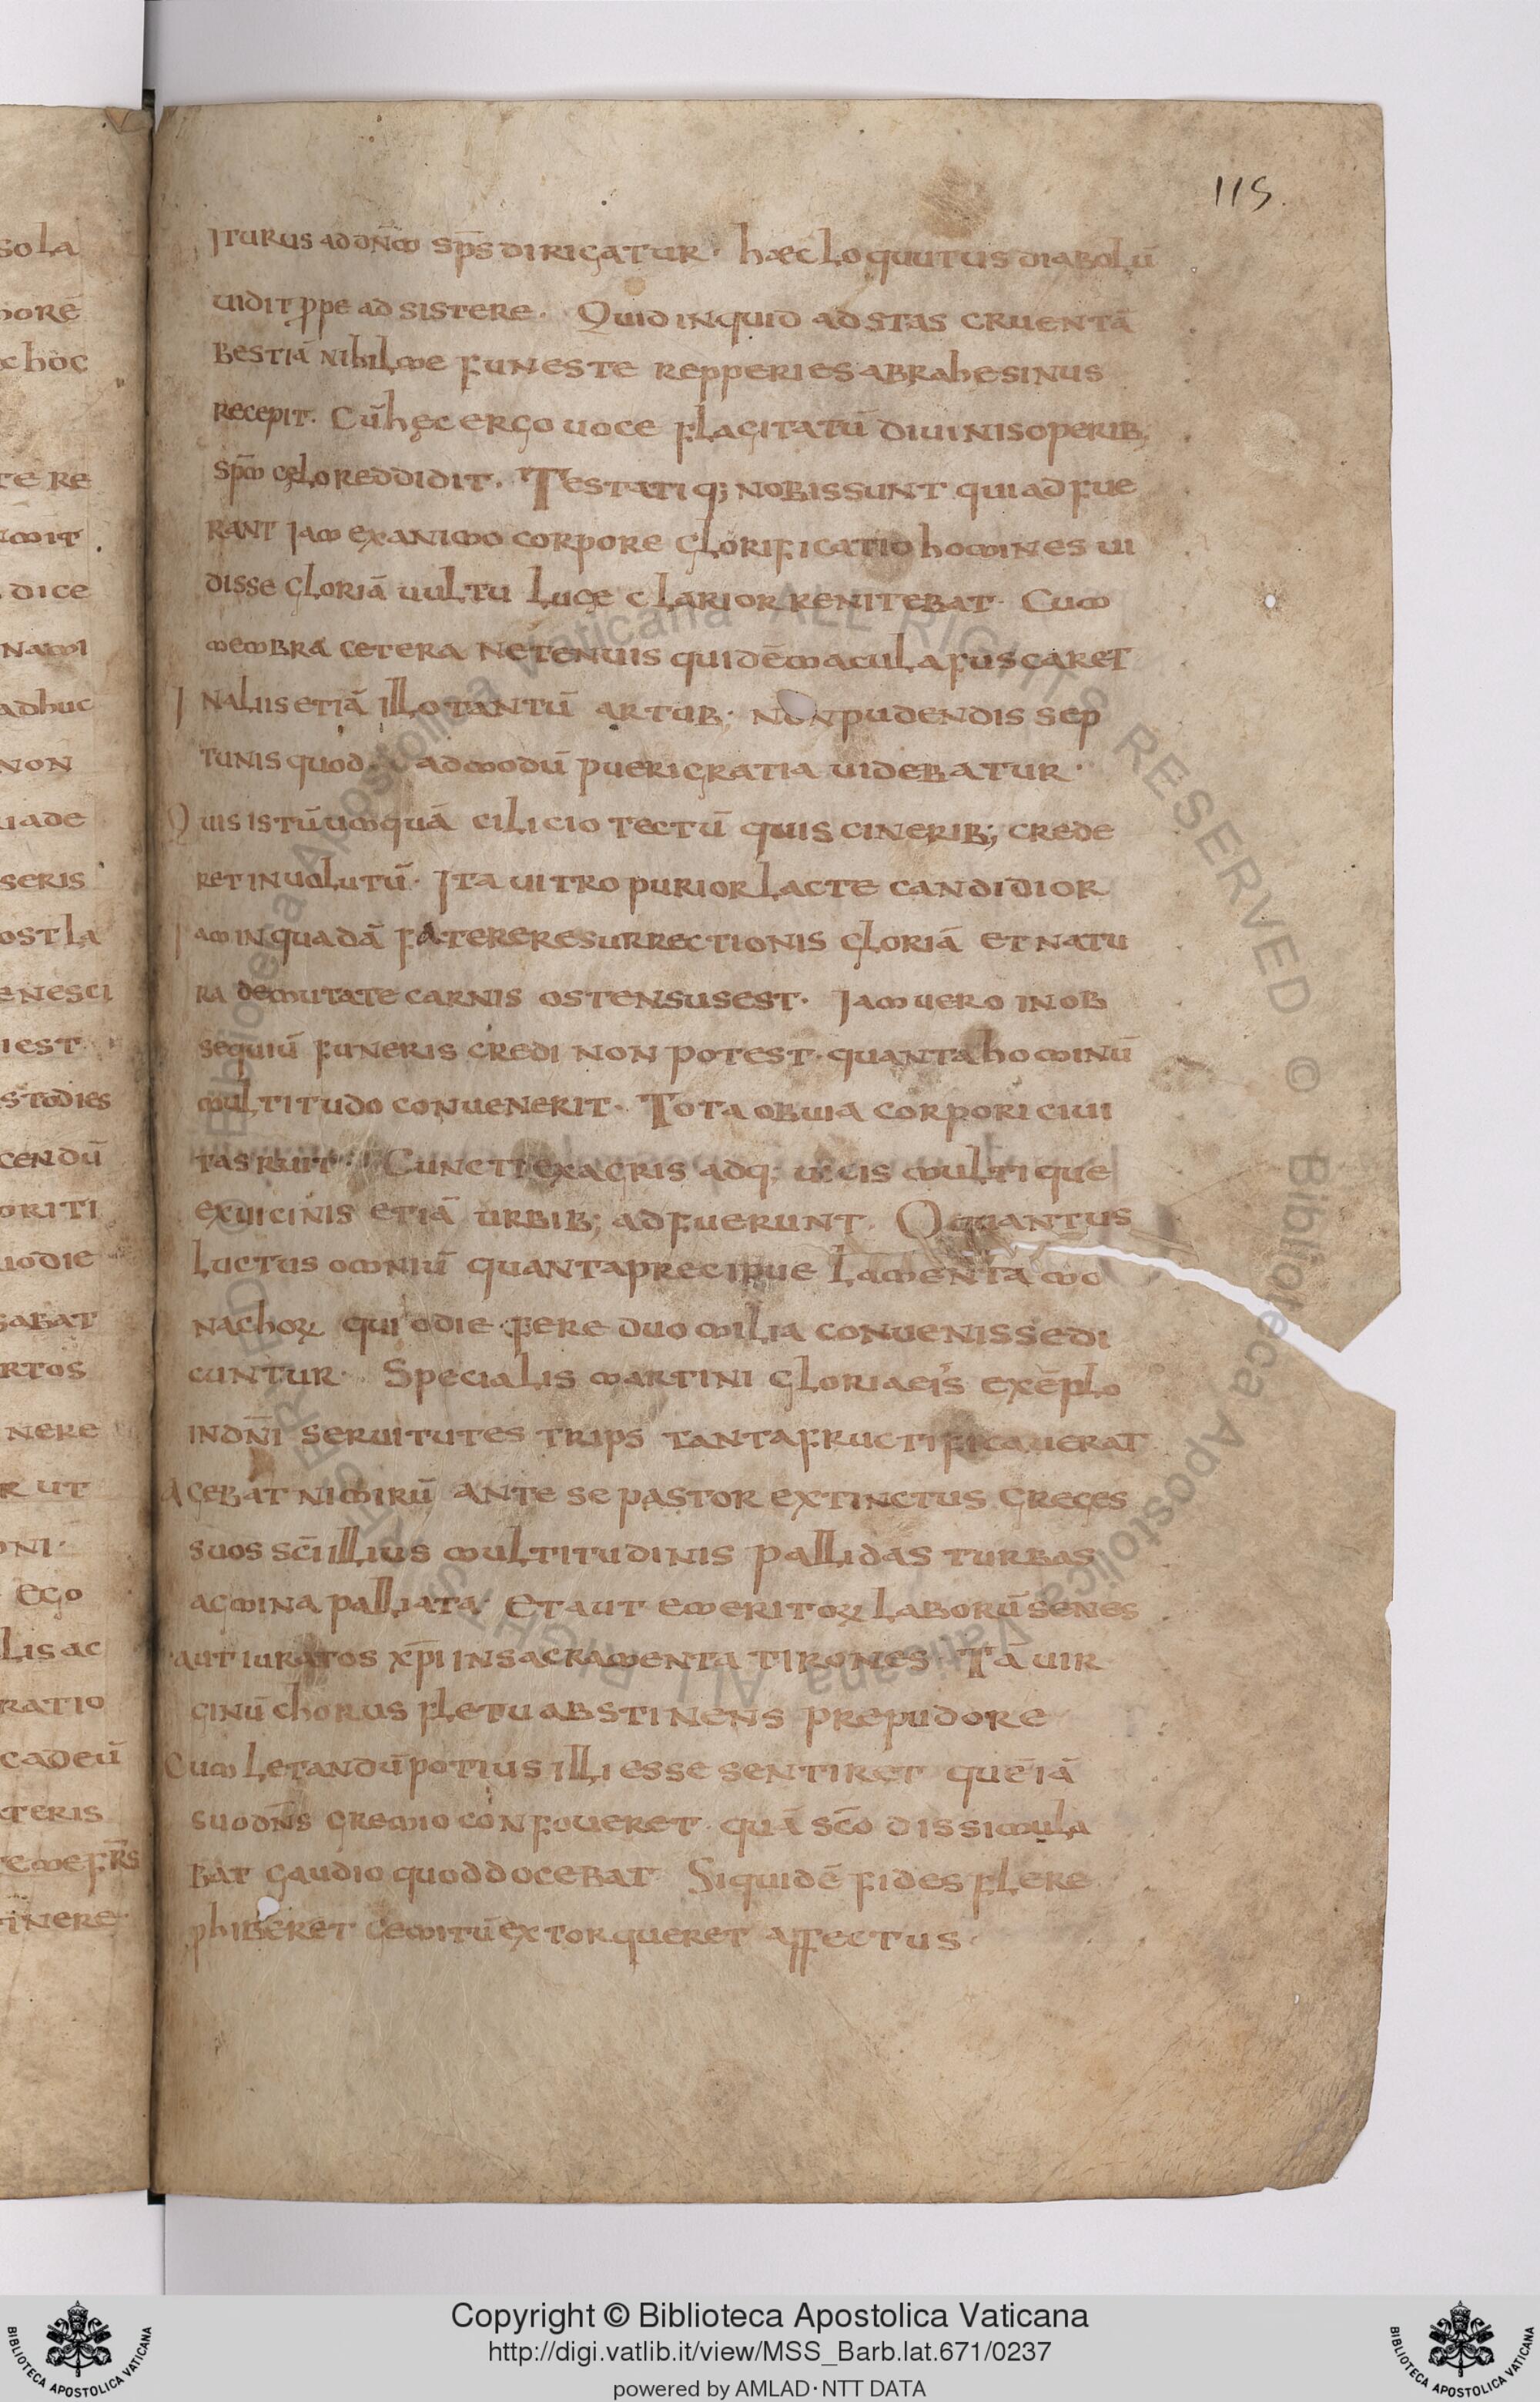 115.
sola
Iturus ad dn̄m sp̄s dirigatur · haec loquutus diabolū
uidit ꝓpe adsistere · Quid inquid adstas cruentā
bestiā nihil me funeste repperies abrahe sinus
recepit · Cū hęc ergo uoce flagitatū diuinis operib;
sp̄m cęlo reddidit · Testatiq; nobis sunt qui adfue
rant Iam exanimo corpore glorificatio homines ui
disse gloriā uultu luce clarior renitebat · Cum
membra cetera ne tenuis quidē macula fuscaret
In aliis etiā Illo tantū artub · non pudendis sep
tunis quod admodū pueri gratia uidebatur ·
Quis istū umquā cilicio tectū quis cinerib; crede
ret inuolutū · Ita uitro purior lacte candidior
Iam in quadā fatere resurrectionis gloriā et natu
ra demutate carnis ostensus est · Iam uero in ob
sequiū funeris credi non potest · quanta hominū
multitudo conuenerit · Tota obuia corpori ciui
tas ruit · Cuncti ex agris adq; uicis multique
ex uicinis etiā urbib; adfuerunt · O quantus
luctus omniū quanta precipue lamenta mo
nachoꝝ qui odie fere duo milia conuenisse di
cuntur · Specialis martini gloria eis exēplo
in dn̄i seruitutes trips tanta fructificauerat
Agebat nimirū ante se pastor extinctus greges
suos sc̄i illius multitudinis pallidas turbas
acmina palliata · Et aut emeritoꝝ laborū senes
aut iuratos xp̄i in sacramenta tirones · Tā uir
ginū chorus fletu abstinens pre pudore
Cum letandū potius illi esse sentiret quē iā
suo dn̄s gremio confoueret · quā sc̄o dissimula
bat gaudio quod docebat · Siquidē fides flere
phiberet gemitū extorqueret affectus ·
Copyright © Biblioteca Apostolica Vaticana
http://digi.vatlib.it/view/MSS_Barb.lat.671/0237
powered by AMLAD·NTT DATA